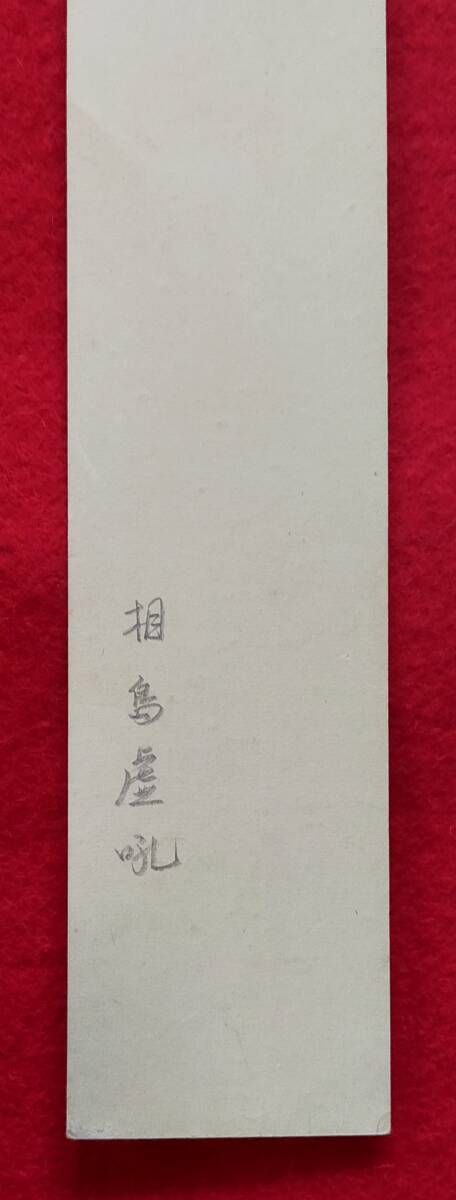 相島虚吼